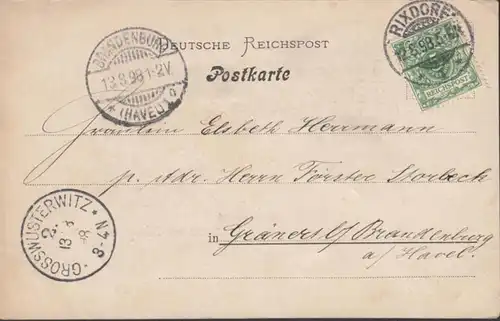 DEUTSCHE REICHSPOST
Postkarte
RIXDORF
REICHSPOST
BRANDENBURG
13.8.98.1-2V.
*(HAVEL) a
Fräulein Elsbeth Herrmann
p. Adr. Herrn Förster Storbeck
in Gränert b/ Brandenburg
a/ Havel.
GROSSWUSTERWITZ
13 8
98
3-4N